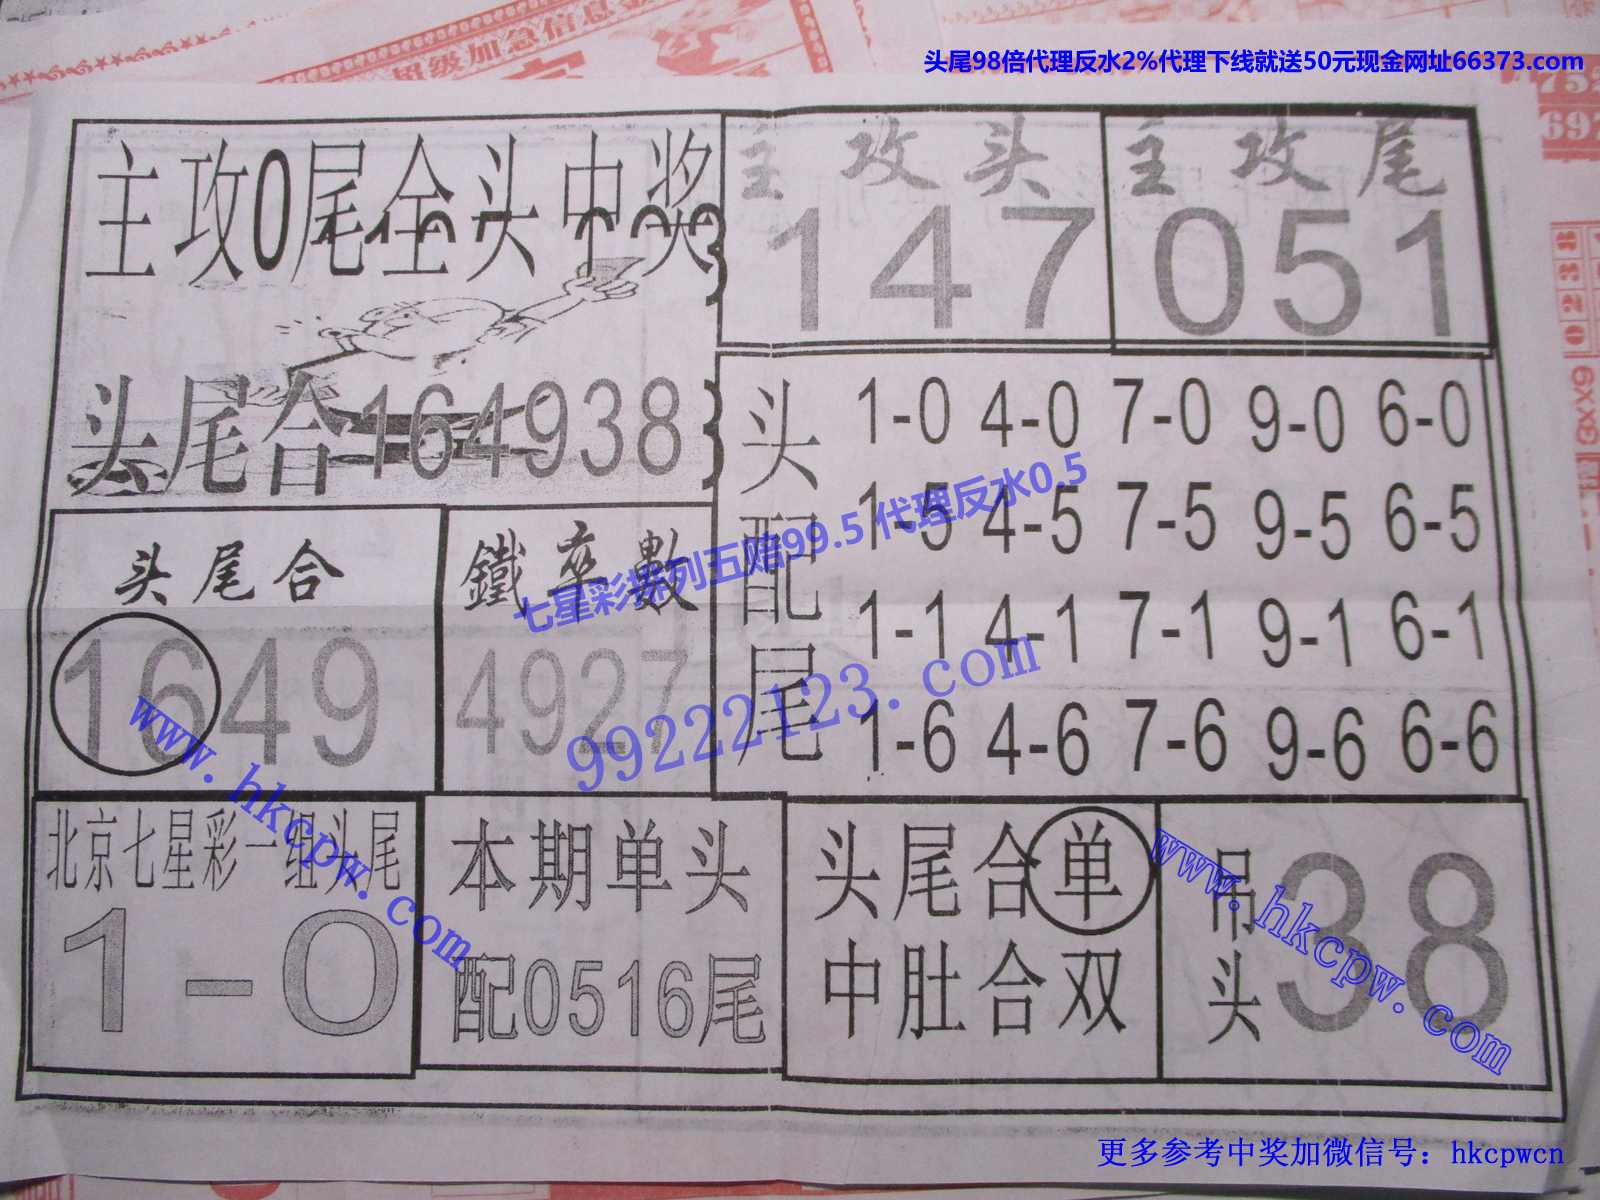 超级加急信息
头尾98倍代理反水2%代理下线就送50元现金网址66373.com
主攻0尾全头中奖
头尾合164938
主攻头
147
主攻尾
051
头配尾
1-0 4-0 7-0 9-0 6-0
1-5 4-5 7-5 9-5 6-5
1-1 4-1 7-1 9-1 6-1
1-6 4-6 7-6 9-6 6-6
头尾合
1649
鐵卒數
4927
七星彩排列五赔99.5 代理反水0.5
99222123.com
www.hkcpw.com
北京七星彩一组头尾
1-0
本期单头
配0516尾
头尾合单
中肚合双
吊头
38
www.hkcpw.com
更多参考中奖加微信号：hkcpwcn